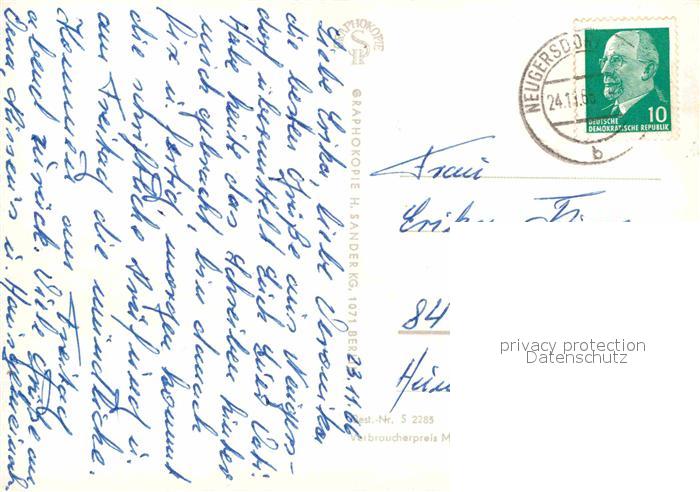 23.11.66
Liebe Erika, liebe Veronika
die besten Grüße aus Neugers-
dorf übermittelt Euch Euer Vati.
Habe heute das Schreiben hinter
mich gebracht, bin danach
fix u. fertig, morgen kommt
die schriftliche Prüfung u.
am Freitag die mündliche.
Komme am Freitag
abend zurück. Viele Grüße an
Oma, u. Hans
GRAPHOKOPIE
GRAPHOKOPIE H. SANDER KG, 1071 BER
Best.-Nr. S 2285
Verbraucherpreis M
NEUGERSDORF
24.11.66
b
10
DEUTSCHE
DEMOKRATISCHE REPUBLIK
Frau
84
privacy protection
Datenschutz